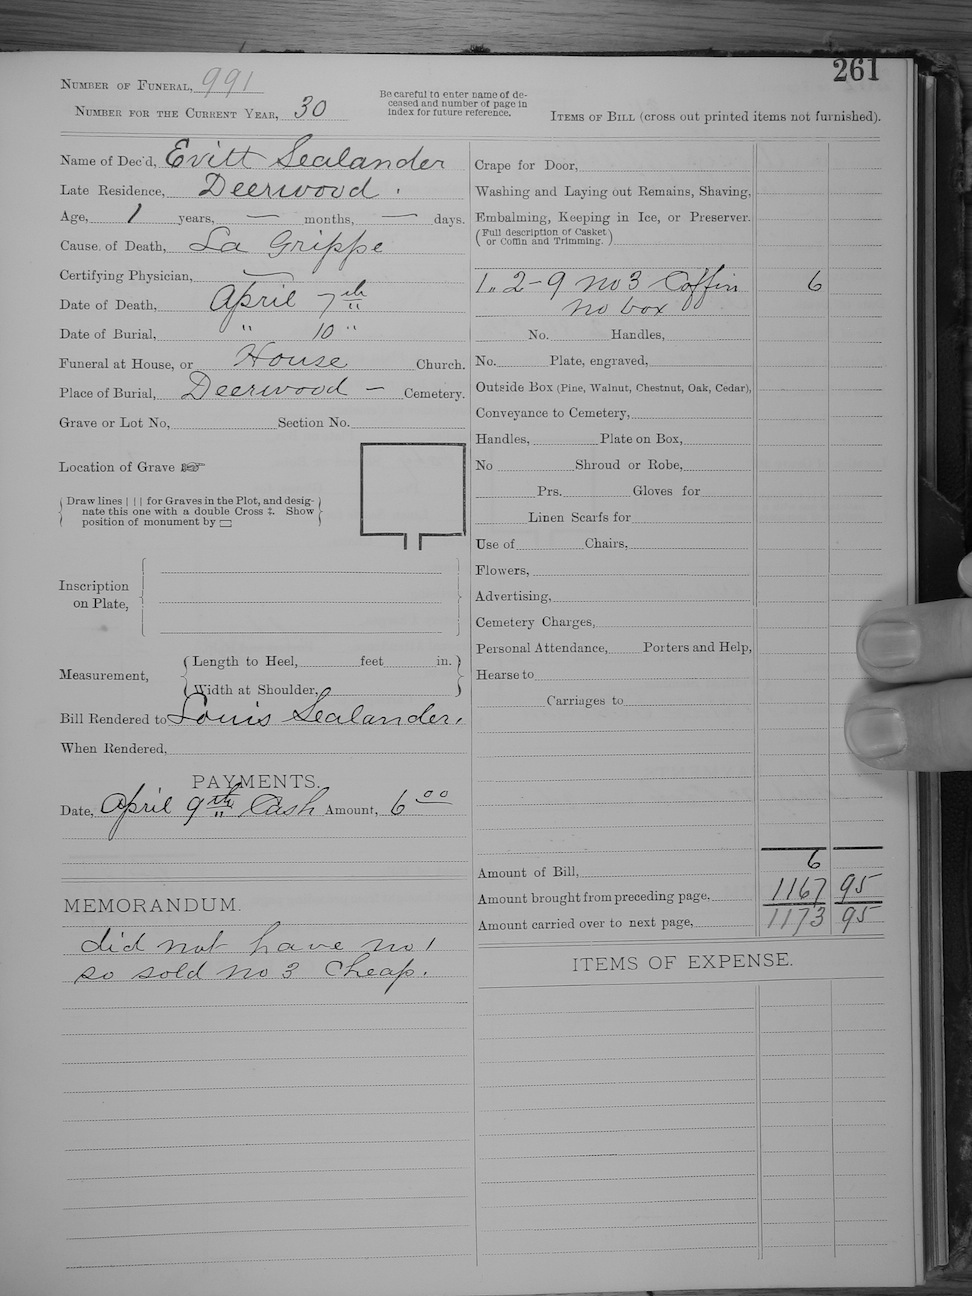 261
Number of Funeral, 991
Number for the Current Year, 30
Be careful to enter name of de-
ceased and number of page in
index for future reference.
Items of Bill (cross out printed items not furnished).
Name of Dec'd, Evitt Sealander
Late Residence, Deerwood.
Age, 1 years, — months, — days.
Cause of Death, La Grippe
Certifying Physician, —
Date of Death, April 7th
Date of Burial, " 10 "
Funeral at House, or House Church.
Place of Burial, Deerwood — Cemetery.
Grave or Lot No, Section No.
Location of Grave ☞
Draw lines | | | for Graves in the Plot, and desig-
nate this one with a double Cross ‡. Show
position of monument by ▭
Inscription
on Plate,
Measurement,
Length to Heel, feet in.
Width at Shoulder,
Bill Rendered to Louis Sealander.
When Rendered,
PAYMENTS.
Date, April 9th Cash Amount, 6 00
MEMORANDUM.
did not have no 1
so sold no 3 Cheap.
Crape for Door,
Washing and Laying out Remains, Shaving,
Embalming, Keeping in Ice, or Preserver.
(Full description of Casket
or Coffin and Trimming.)
1,, 2-9 no 3 Coffin 6
no box
No. Handles,
No. Plate, engraved,
Outside Box (Pine, Walnut, Chestnut, Oak, Cedar),
Conveyance to Cemetery,
Handles, Plate on Box,
No Shroud or Robe,
Prs. Gloves for
Linen Scarfs for
Use of Chairs,
Flowers,
Advertising,
Cemetery Charges,
Personal Attendance, Porters and Help,
Hearse to
Carriages to
Amount of Bill, 6
Amount brought from preceding page, 1167 95
Amount carried over to next page, 1173 95
ITEMS OF EXPENSE.